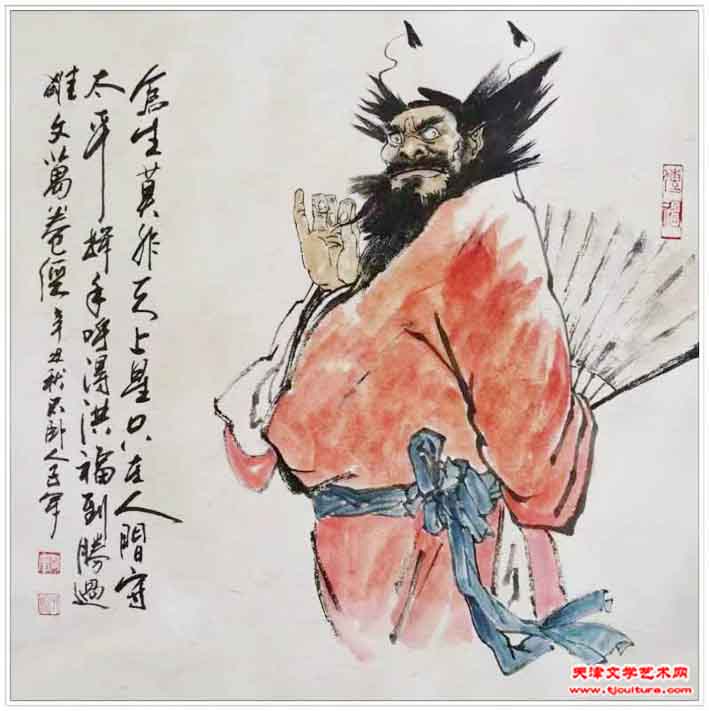 生莫非天上星只在人間守
太平揮手呼得洪福到勝過
雄文萬卷經 辛丑秋
天津文学艺术网
www.tjculture.com